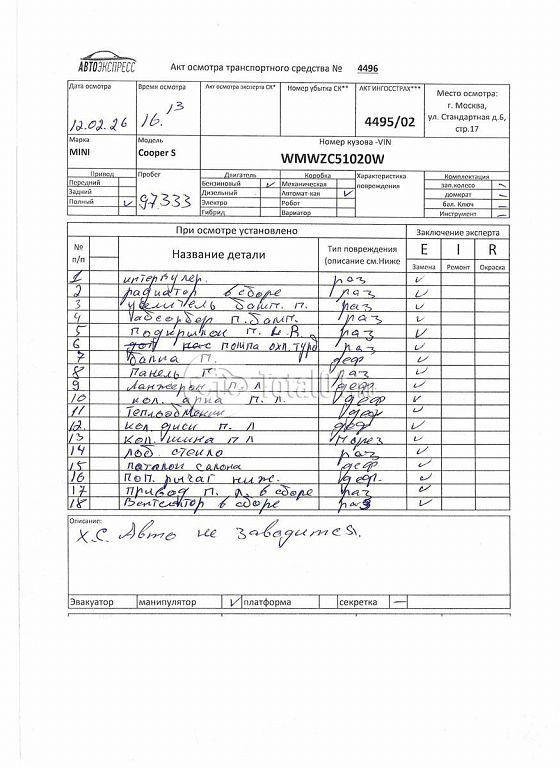 АВТОЭКСПРЕСС
Акт осмотра транспортного средства № 4496
Дата осмотра
12.02.26
Время осмотра
16.13
Акт осмотра эксперта СК*
Номер убытка СК**
АКТ ИНГОССТРАХ***
4495/02
Место осмотра:
г. Москва,
ул. Стандартная д.6,
стр.17
Марка
MINI
Модель
Cooper S
Номер кузова -VIN
WMWZC51020W
Привод
Передний
Задний
Полный ✓
Пробег
97333
Двигатель
Бензиновый ✓
Дизельный
Электро
Гибрид
Коробка
Механическая
Автомат-кая ✓
Робот
Вариатор
Характеристика
повреждения
Комплектация
зап.колесо ✓
домкрат –
бал. Ключ –
Инструмент –
При осмотре установлено
Заключение эксперта
№
п/п
Название детали
Тип повреждения
(описание см.Ниже
E I R
Замена Ремонт Окраска
1 интеркулер. раз ✓
2 радиатор в сборе раз ✓
3 усилитель бамп. п. раз ✓
4 абсорбер п. бамп. раз ✓
5 подкрылок п. раз ✓
6 помпа охл. турб раз ✓
7 балка п. деф ✓
8 панель п раз ✓
9 Лонжерон п л деф ✓
10 кол. арка п. л. деф ✓
11 Теплообменник деф ✓
12. кол. диск п. л деф ✓
13 кол. шина п л порез ✓
14 лоб. стекло раз ✓
15 потолок салона деф ✓
16 поп. рычаг ниж. деф. ✓
17 привод п. л. в сборе раз ✓
18 Вентелятор в сборе раз ✓
Total
Описание:
Х.С. Авто не заводится.
Эвакуатор манипулятор ✓ платформа секретка –